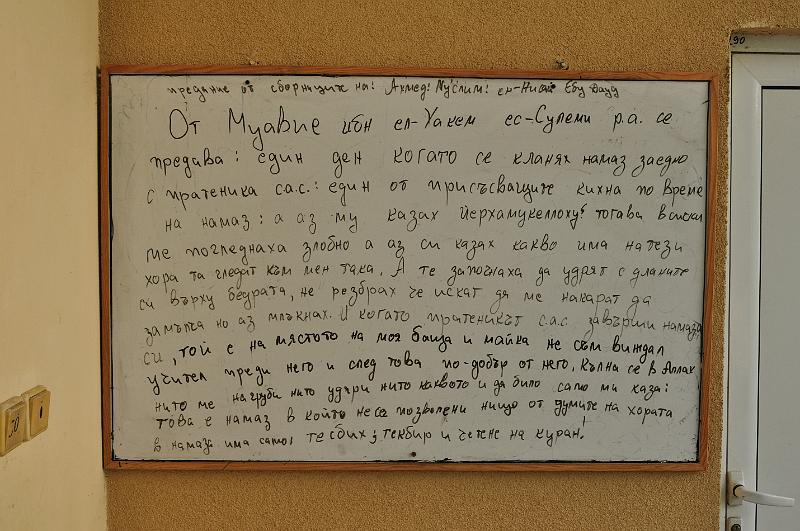 предание от сборниците на: Ахмед! Муслим! ен-Ниса Ебу Дауд
От Муавие ибн ел-Хакем ес-Сулеми р.а. се
предава: един ден когато се кланях намаз заедно
с пратеника с.а.с.: един от присъсващите кихна по време
на намаз: а аз му казах Йерхамукеллоху! тогава всички
ме погледнаха злобно а аз си казах какво има на тези
хора та гледат към мен така. А те започнаха да удрят с дланите
си върху бедрата, не резбрах че искат да ме накарат да
замълча но аз млъкнах. И когато пратеникът с.а.с. завърши намаза
си, той е на мястото на моя баща и майка не съм виждал
учител преди него и след това по-добър от него, кълна се в Аллах
нито ме нагруби нито удари нито каквото и да било само ми каза:
това е намаз в който не са позволени нищо от думите на хората
в намаза има само: тесбих; текбир и четене на куран!
90
30
1